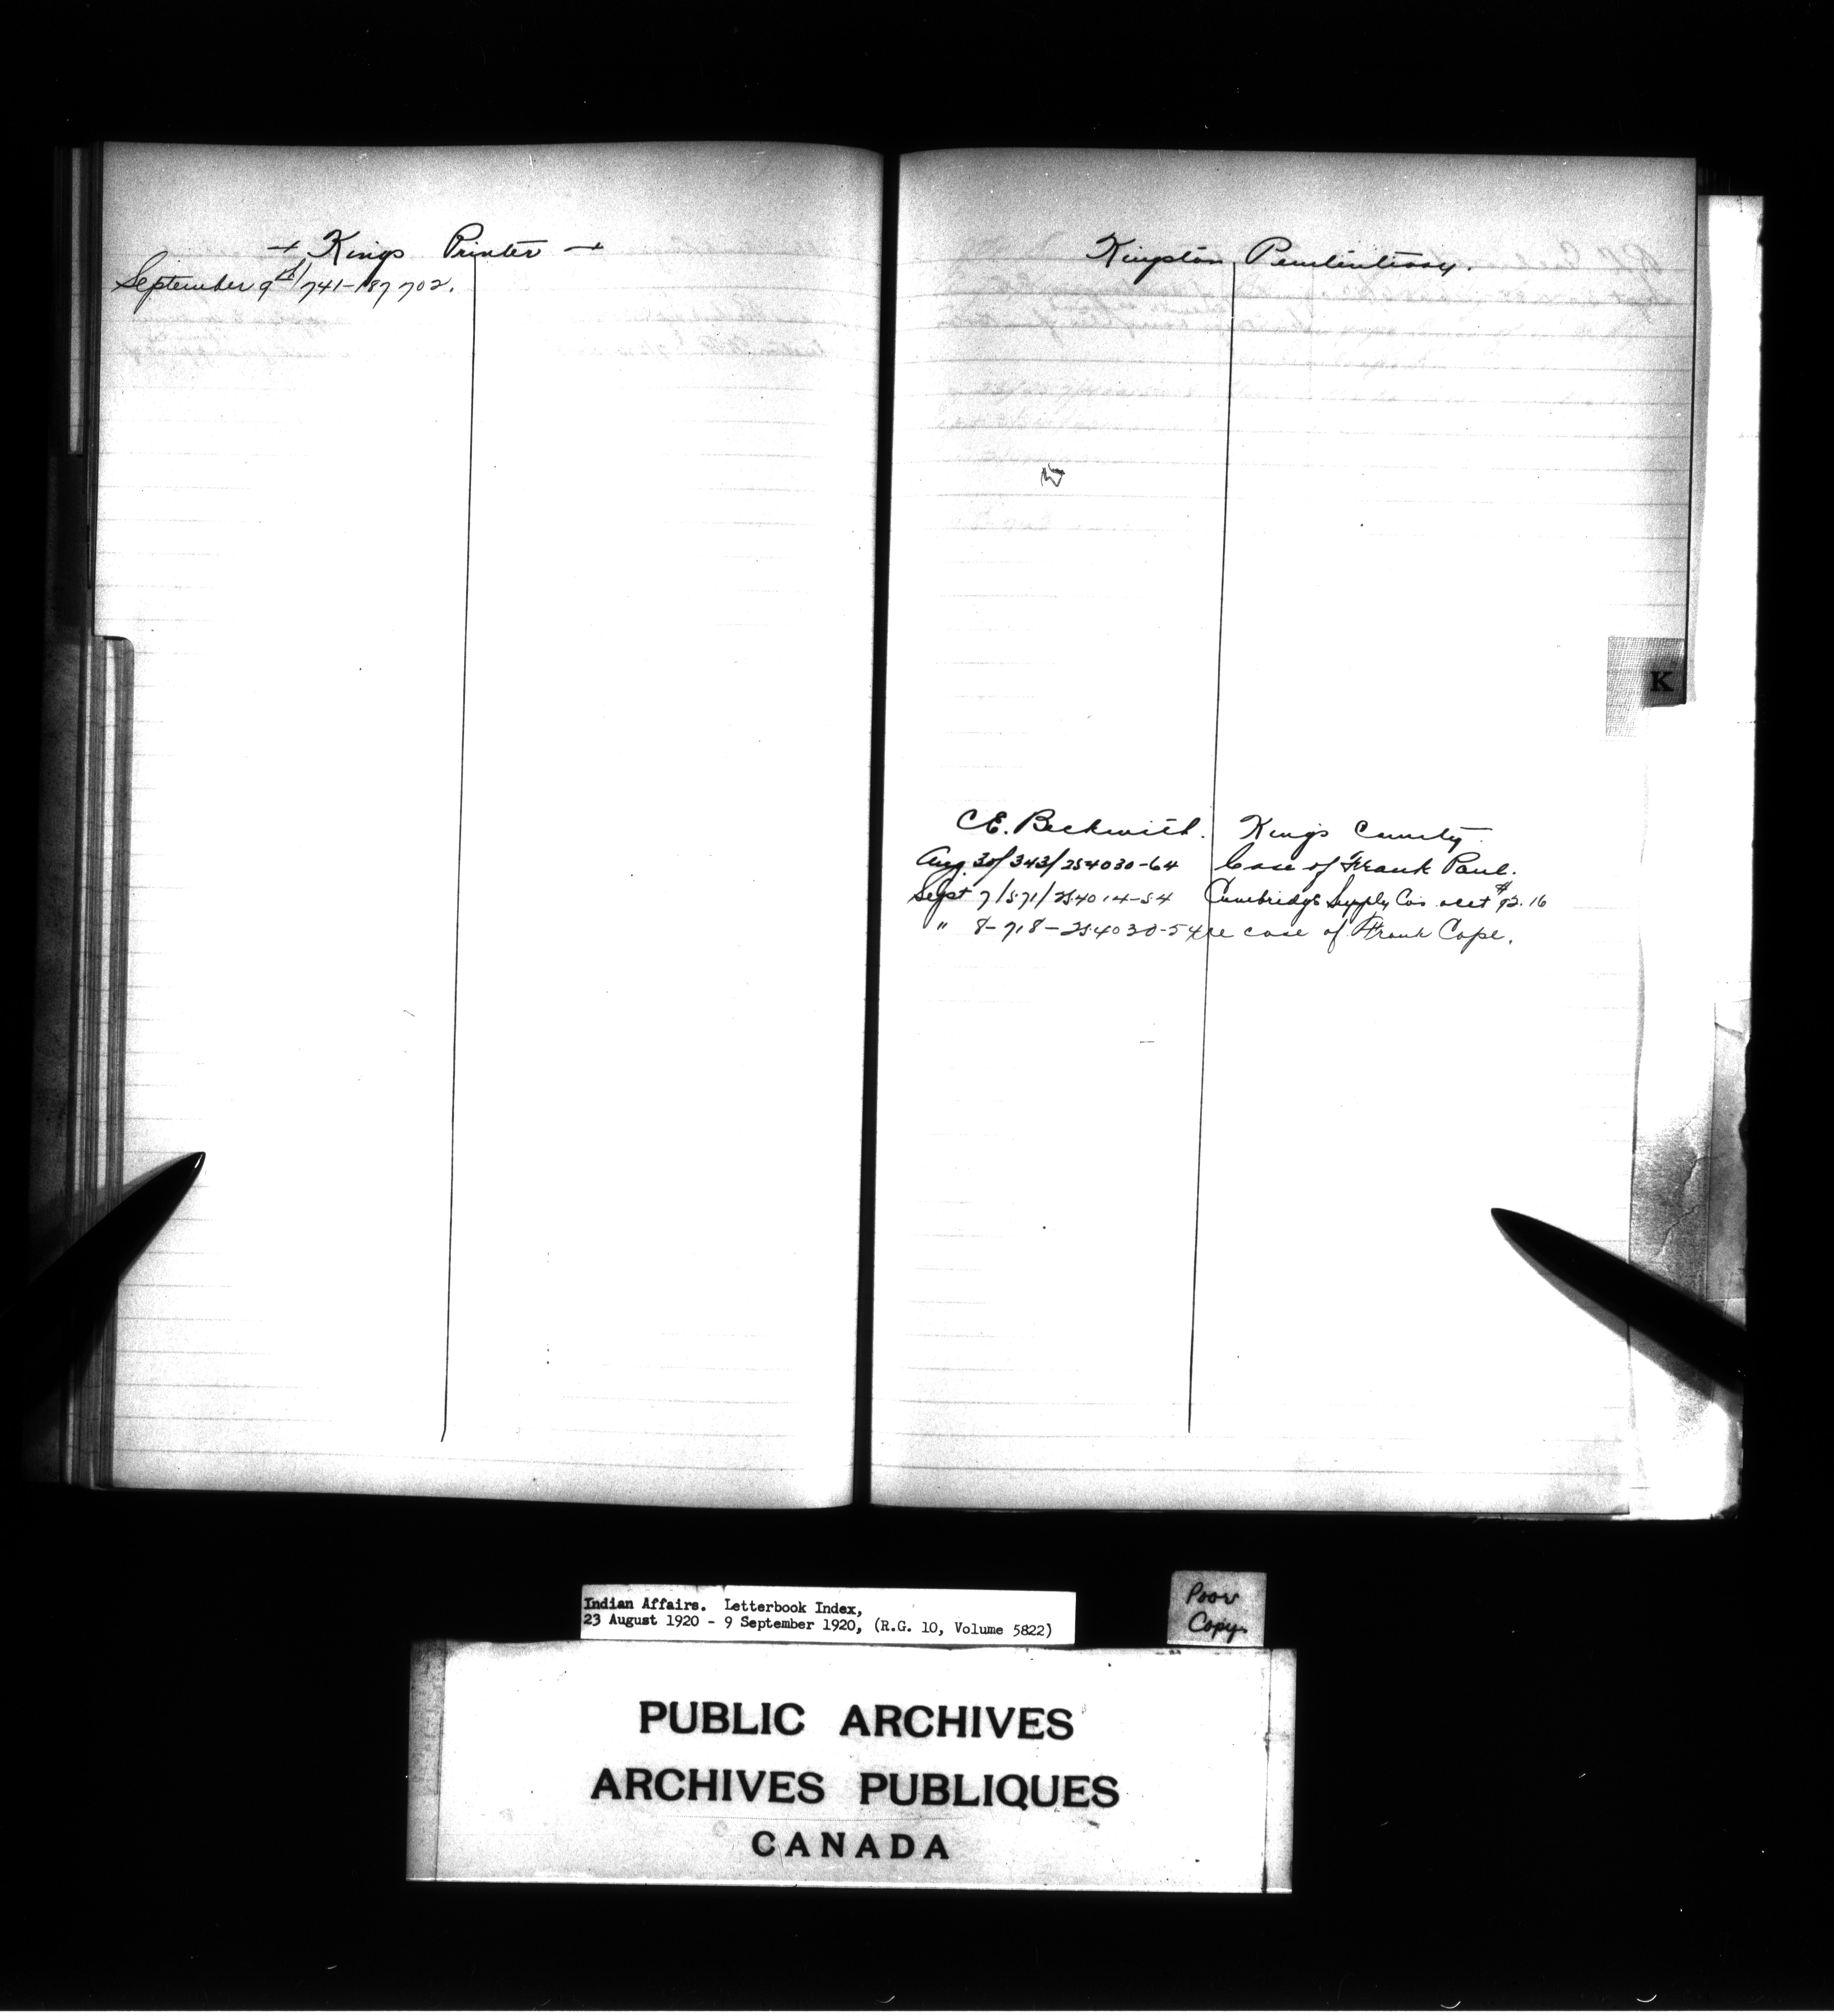 Kings Printer
September 9th/741-187702.
Kingston Penitentiary.
K
C.E. Beckwith. Kings County
Aug. 30/343/254030-64 Case of Frank Paul.
Sept 7/571/254014-54 Cambridge Supply Co's acct $92.16
" 8-718-254030-54 re case of Frank Cope.
Indian Affairs. Letterbook Index,
23 August 1920 - 9 September 1920, (R.G. 10, Volume 5822)
Poor
Copy.
PUBLIC ARCHIVES
ARCHIVES PUBLIQUES
CANADA